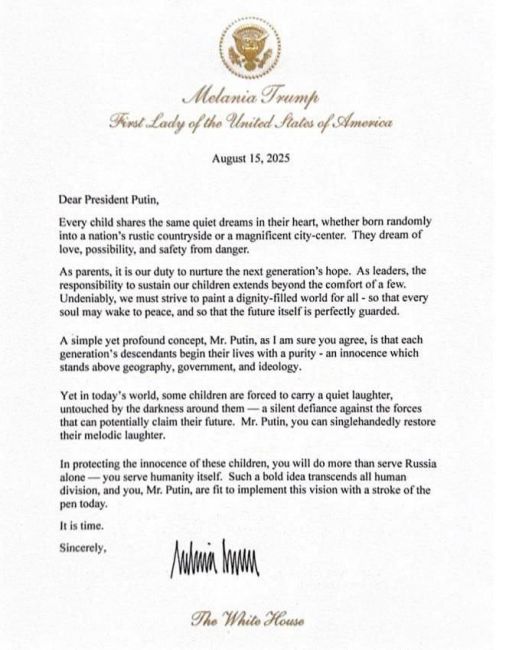 Melania Trump
First Lady of the United States of America
August 15, 2025
Dear President Putin,
Every child shares the same quiet dreams in their heart, whether born randomly
into a nation's rustic countryside or a magnificent city-center. They dream of
love, possibility, and safety from danger.
As parents, it is our duty to nurture the next generation's hope. As leaders, the
responsibility to sustain our children extends beyond the comfort of a few.
Undeniably, we must strive to paint a dignity-filled world for all - so that every
soul may wake to peace, and so that the future itself is perfectly guarded.
A simple yet profound concept, Mr. Putin, as I am sure you agree, is that each
generation's descendants begin their lives with a purity - an innocence which
stands above geography, government, and ideology.
Yet in today's world, some children are forced to carry a quiet laughter,
untouched by the darkness around them — a silent defiance against the forces
that can potentially claim their future. Mr. Putin, you can singlehandedly restore
their melodic laughter.
In protecting the innocence of these children, you will do more than serve Russia
alone — you serve humanity itself. Such a bold idea transcends all human
division, and you, Mr. Putin, are fit to implement this vision with a stroke of the
pen today.
It is time.
Sincerely,
The White House